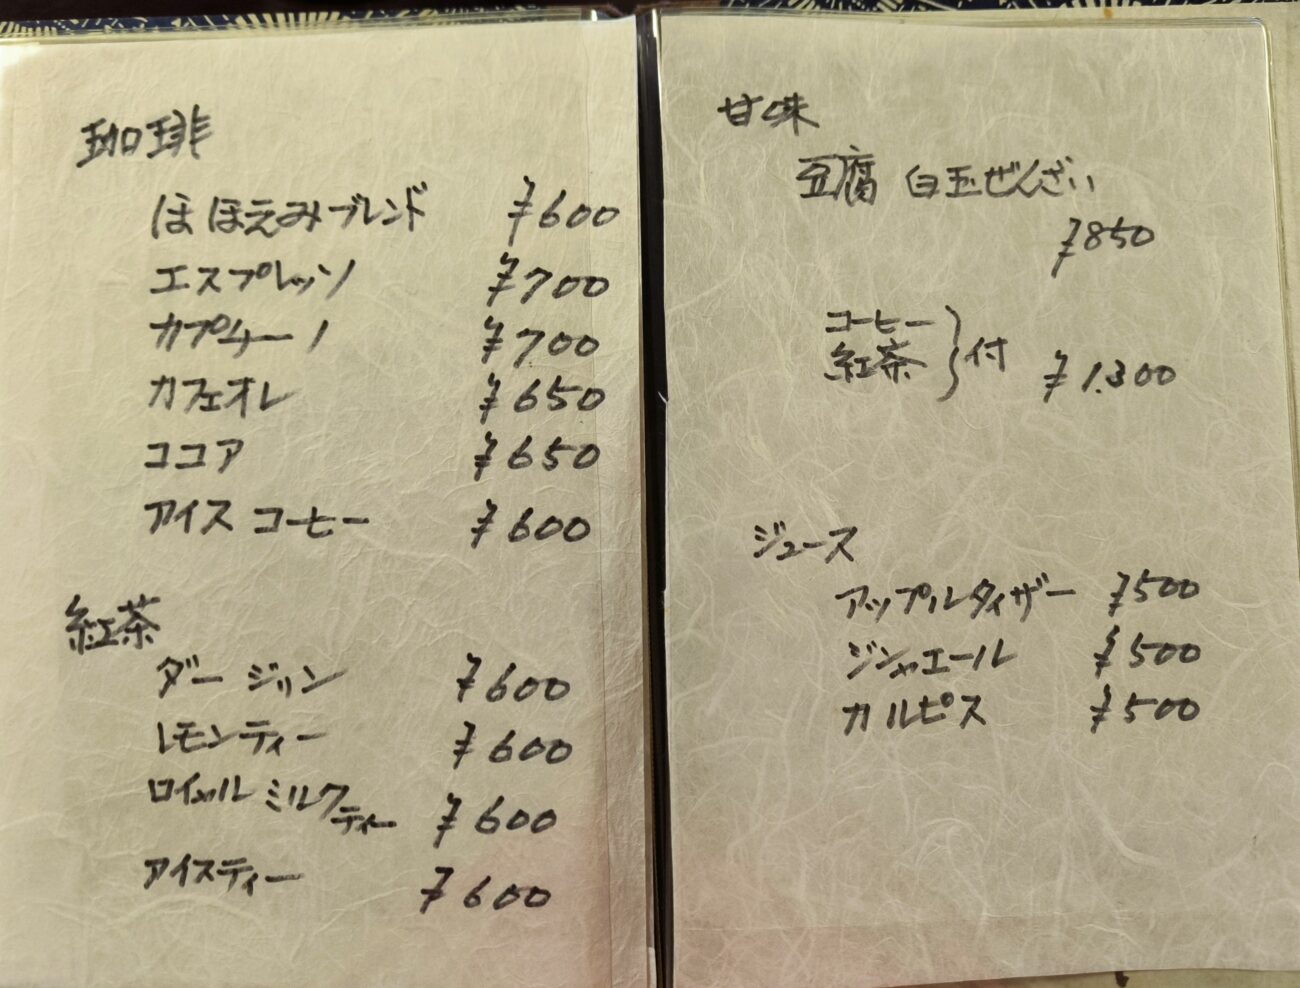 珈琲
ほほえみブレンド ¥600
エスプレッソ ¥700
カプチーノ ¥700
カフェオレ ¥650
ココア ¥650
アイスコーヒー ¥600
紅茶
ダージリン ¥600
レモンティー ¥600
ロイヤルミルクティー ¥600
アイスティー ¥600
甘味
豆腐 白玉ぜんざい
¥850
コーヒー
紅茶 } 付 ¥1,300
ジュース
アップルタイザー ¥500
ジンジャエール ¥500
カルピス ¥500